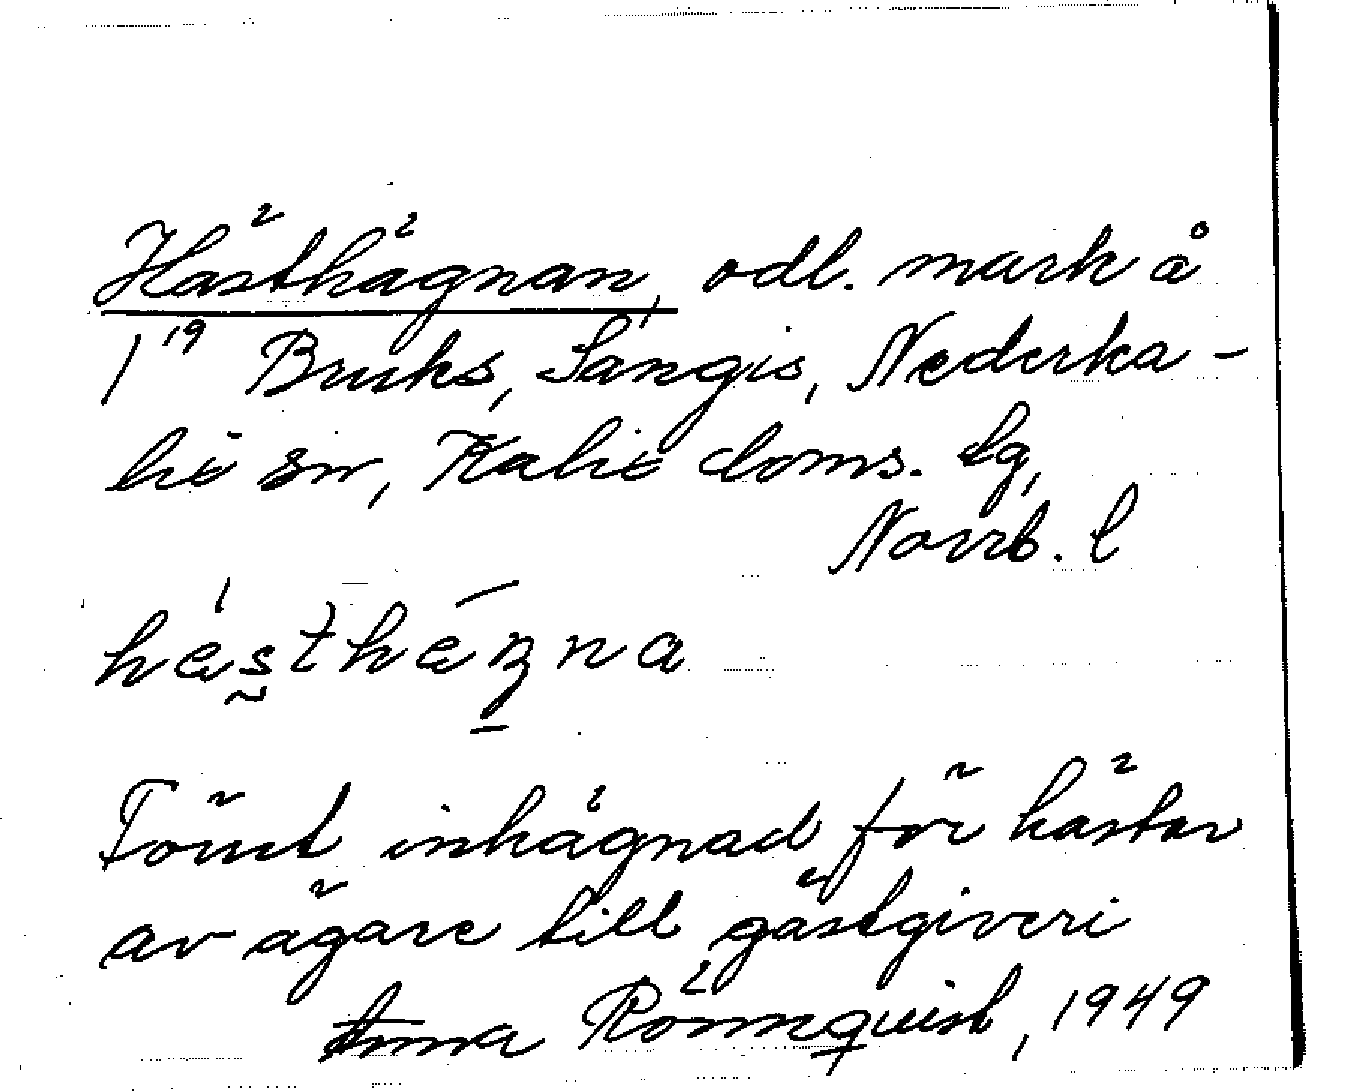 Hästhägnan, odl. mark å
1¹⁹ Bruks, Sangis, Nederka-
lix sn, Kalix doms. lg,
Norrb. l
Förut inhägnad för hästar
av ägare till gästgiveri
Anna Rönnquist, 1949